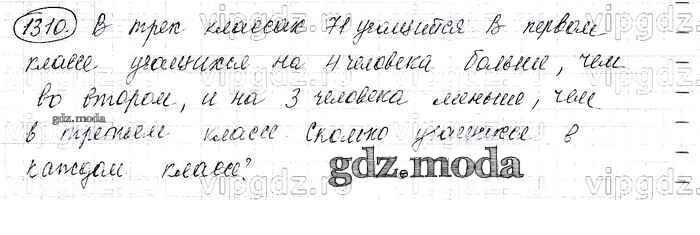 1310. В трех классах 71 учащийся В первом
классе учащихся на 4 человека больше, чем
во втором, и на 3 человека меньше, чем
gdz.moda
в третьем классе. Сколько учащихся в
каждом классе?
gdz.moda
vipgdz
vipgdz.ru
vipgdz